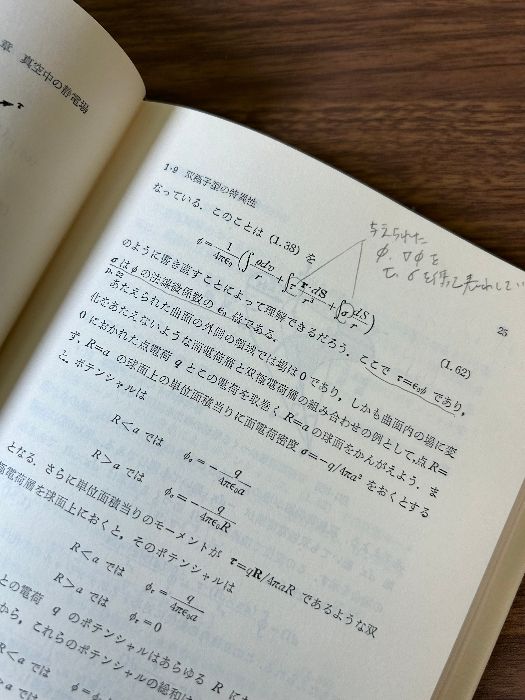 章 真空中の静電場
1・9 双極子型の特異性
25
なっている．このことは (1.38) を
φ=1/4πε₀(∫ρdv/r+∫τ・r・dS/r³+∫σdS/r) (1.62)
与えられた
φ. ∇φ を
のように書き直すことによって理解できるだろう．ここで τ=ε₀φ であり，
σ は φ の法線微係数の ε₀ 倍である．
あたえられた曲面の外側の領域では場は0であり，しかも曲面内の場に変
化をあたえないような面電荷層と双極電荷層の組み合わせの例として，点 R=
0 におかれた点電荷 q とこの電荷を取巻く R=a の球面をかんがえよう．ま
ず，R=a の球面上の単位面積当りに面電荷密度 σ=−q/4πa² をおくとする
と，ポテンシャルは
R<a では φσ=−q/4πε₀a
R>a では φσ=−q/4πε₀R
となる．さらに単位面積当りのモーメントが τ=qR/4πaR であるような双
電荷層を球面上におくと，そのポテンシャルは
R<a では φτ=q/4πε₀a
R>a では φτ=0
との電荷 q のポテンシャルはあらゆる R に
から，これらのポテンシャルの総和は
R<a では
R>a では